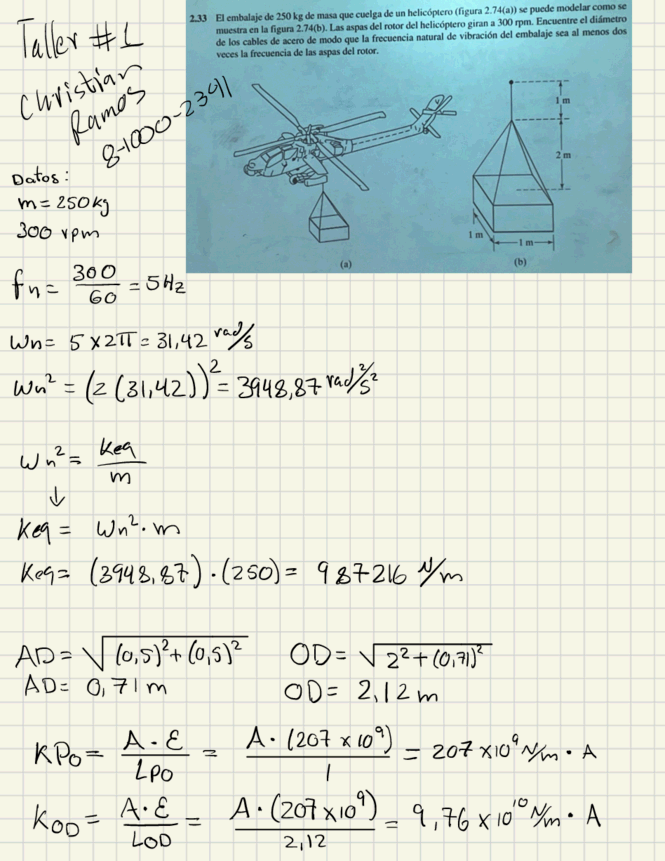 Taller #1
Christian
Ramos
8-1000-2341
2.33 El embalaje de 250 kg de masa que cuelga de un helicóptero (figura 2.74(a)) se puede modelar como se
muestra en la figura 2.74(b). Las aspas del rotor del helicóptero giran a 300 rpm. Encuentre el diámetro
de los cables de acero de modo que la frecuencia natural de vibración del embalaje sea al menos dos
veces la frecuencia de las aspas del rotor.
1 m
2 m
1 m
1 m
(a)
(b)
Datos:
m = 250 kg
300 rpm
fn = 300/60 = 5 Hz
Wn = 5 x 2π = 31,42 rad/s
Wn² = (2(31,42))² = 3948,87 rad²/s²
Wn² = Keq/m
↓
Keq = Wn² · m
Keq = (3948,87) · (250) = 987216 N/m
AD = √((0,5)² + (0,5)²) OD = √(2² + (0,71)²)
AD = 0,71 m OD = 2,12 m
KPO = A · E / LPO = A · (207 x 10⁹) / 1 = 207 x 10⁹ N/m · A
KOD = A · E / LOD = A · (207 x 10⁹) / 2,12 = 9,76 x 10¹⁰ N/m · A